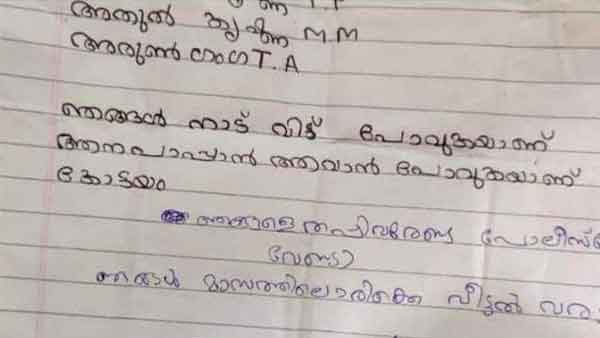 അതുൽ കൃഷ്ണ M.M
അരുൺ T.A
ഞങ്ങൾ നാട് വിട്ട് പോവുകയാണ്
ആനപാപ്പാൻ ആവാൻ പോവുകയാണ്
കോട്ടയം
ഞങ്ങളെ തപ്പിവരേണ്ട പോലീസ്
വേണ്ടാ
ഞങ്ങൾ മാസത്തിലൊരിക്കെ വീട്ടൽ വരാ